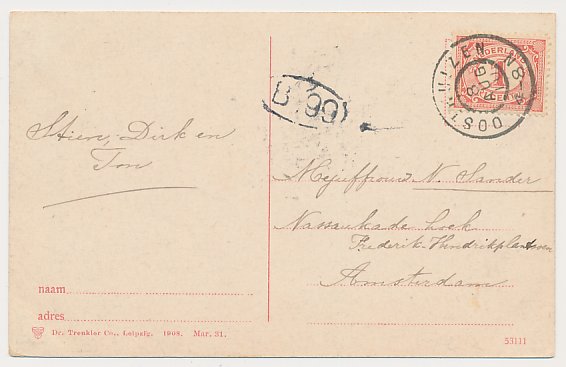 NEDERLAND
1
OOSTHUIZEN
N 8-
B 99
Stien, Dirk en
Ton
Mejuffrouw N. Sander
Nassaukade hoek
Frederik-Hendrikplantsoen
Amsterdam
naam
adres
Dr. Trenkler Co., Leipzig. 1908. Mar. 31.
53111